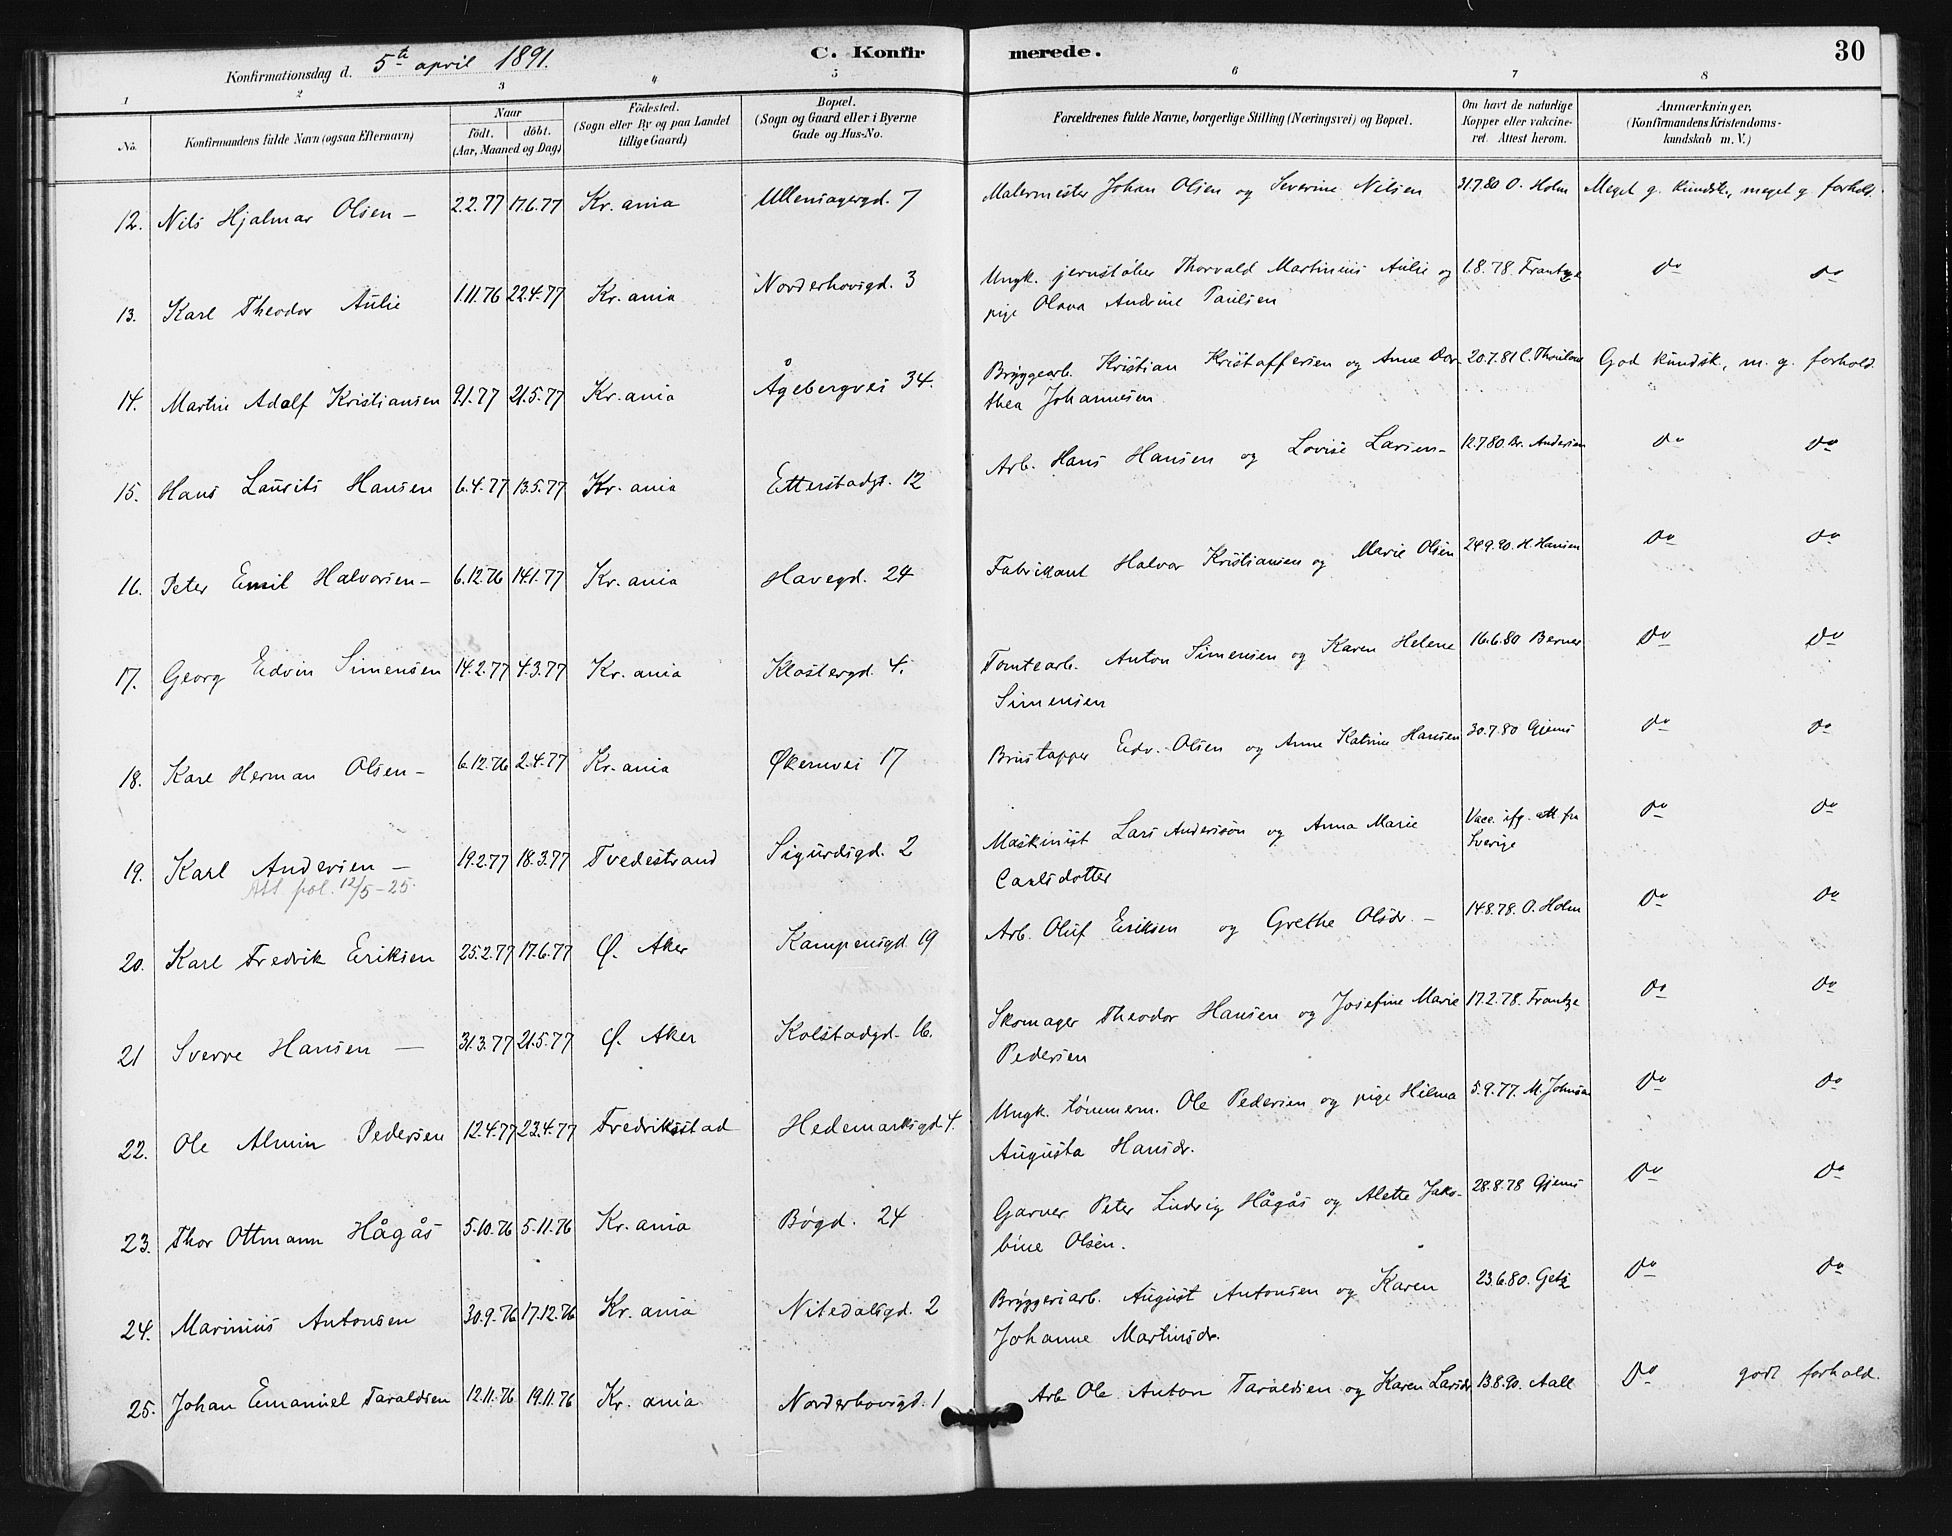 Konfirmationsdag d. 5te april 1891. C. Konfirmerede. 30
1 2 3 4 5 6 7 8
No. Konfirmandens fulde Navn (ogsaa Efternavn) Naar födt. döbt. (Aar, Maaned og Dag) Födested. (Sogn eller By og paa Landet tillige Gaard) Bopæl. (Sogn og Gaard eller i Byerne Gade og Hus-No. Forældrenes fulde Navne, borgerlige Stilling (Næringsvei) og Bopæl. Om havt de naturlige Kopper eller vakcineret. Attest herom. Anmærkninger. (Konfirmandens Kristendomskundskab m. V.)
12. Nils Hjalmar Olsen – 2.2.77 17.6.77 Kr.ania Ullensagergd. 7 Malermester Johan Olsen og Severine Nilsen 31.7.80 O. Holm Meget g. kundsk., meget g. forhold.
13. Karl Theodor Aulie 1.11.76 22.4.77 Kr.ania Norderhovsgd. 3 Ungk. jernstøber Thorvald Martinius Aulie og 1.8.78. Frantze do do
pige Olava Andrine Paulsen
14. Martin Adolf Kristiansen 9.1.77 21.5.77 Kr.ania Ågebergvei 34. Bryggearb. Kristian Kristoffersen og Anne Dor- 20.7.81 C. God kundsk., m. g. forhold.
thea Johannesen
15. Hans Laurits Hansen 6.4.77 13.5.77 Kr.ania Etterstadgt. 12 Arb. Hans Hansen og Lovise Larsen – 12.7.80. Br. Andersen do do
16. Peter Emil Halvorsen – 6.12.76 14.1.77 Kr.ania Havegd. 24 Fabrikant Halvor Kristiansen og Marie Olsen 24.9.90. H. Hansen do do
17. Georg Edvin Simensen 14.2.77 4.3.77 Kr.ania Klostergd. 4. Tomtearb. Anton Simensen og Karen Helene 16.6.80 Berner do do
Simensen
18. Karl Herman Olsen – 6.12.76 2.4.77 Kr.ania Økernvei 17 Brustapper Edv. Olsen og Anne Katrine Hansen 30.7.80 Gjems do do
19. Karl Andersen – 19.2.77 18.3.77 Tvedestrand Sigurdsgd. 2 Maskinist Lars Andersson og Anna Marie Vacc. ifg. att. fra Sverige do do
Att. pol. 12/5-25. Carlsdotter
20. Karl Fredrik Eriksen 25.2.77 17.6.77 Ø. Aker Kampensgd. 19 Arb. Oluf Eriksen og Grethe Olsdr. – 14.8.78. O. Holm do do
21 Sverre Hansen – 31.3.77 21.5.77 Ø. Aker Kolstadgd. 16. Skomager Theodor Hansen og Josefine Marie 17.2.78. Frantze do do
Pedersen
22. Ole Almin Pedersen 12.4.77 23.4.77 Fredrikstad Hedemarksgd. 4. Ungk. tømmerm. Ole Pedersen og pige Hilma 5.9.77. M. Johnsen do do
Augusta Hansdr.
23. Thor Ottmann Hågås 5.10.76 5.11.76 Kr.ania Bøgd. 24 Garver Peter Ludvig Hågås og Alette Jako- 28.8.78 Gjems do do
bine Olsen.
24. Marinius Antonsen 30.9.76 17.12.76 Kr.ania Nitedalsgd. 2 Bryggeriarb. August Antonsen og Karen 23.6.80. Getz do do
Johanne Martinsdr.
25. Johan Emanuel Taraldsen 12.11.76 19.11.76 Kr.ania Norderhovsgd. 1 Arb. Ole Anton Taraldsen og Karen Larsdr. 13.8.90. Aall do godt forhold.